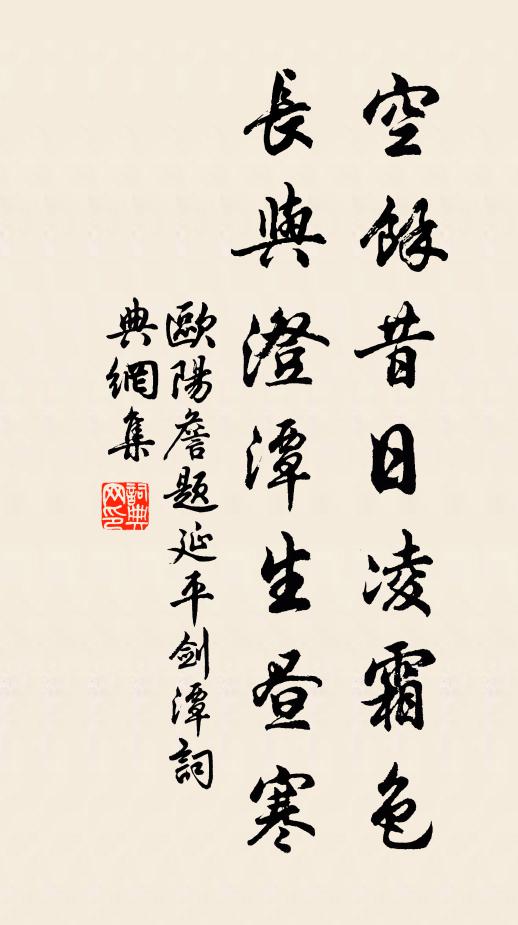 空餘昔日凌霜色
長與澄潭生昼寒
歐陽詹題延平劍潭詞
典網集
詞典網印